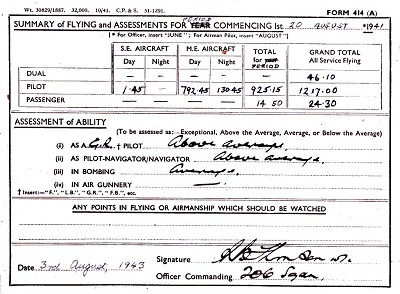 Wt. 30829/1887. 32,000. 10/41. C.P. & S. 51-1291. FORM 414 (A)
PERIOD
SUMMARY of FLYING and ASSESSMENTS FOR YEAR COMMENCING 1st 20 AUGUST *1941
[* For Officer, insert "JUNE"; For Airman Pilot, insert "AUGUST"]
S.E. AIRCRAFT M.E. AIRCRAFT TOTAL GRAND TOTAL
Day Night Day Night for year PERIOD All Service Flying
DUAL — — — — — 46.10
PILOT 1.45 — 792.45 130.45 925.15 1217.00
PASSENGER 14 50 24.30
ASSESSMENT of ABILITY
(To be assessed as:- Exceptional, Above the Average, Average, or Below the Average)
(i) AS A † PILOT Above average.
(ii) AS PILOT-NAVIGATOR/NAVIGATOR Above average.
(iii) IN BOMBING Average.
(iv) IN AIR GUNNERY —
† Insert:- "F.", "L.B.", "G.R.", "F.B.", etc.
ANY POINTS IN FLYING OR AIRMANSHIP WHICH SHOULD BE WATCHED
Signature
Date 3rd August, 1943
Officer Commanding 206 Sqdn.